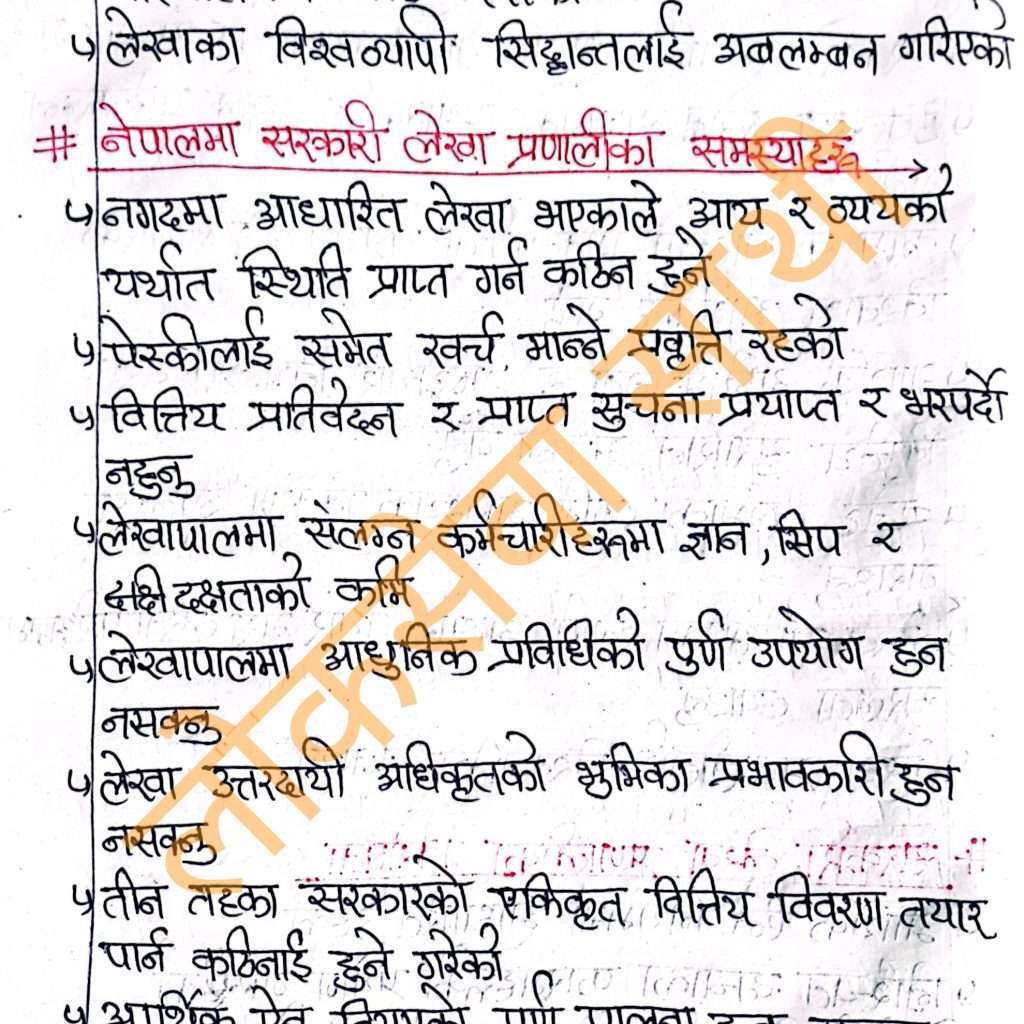 ५ लेखाका विश्वव्यापी सिद्धान्तलाई अबलम्बन गरिएको
# नेपालमा सरकारी लेखा प्रणालीका समस्याहरू
५ नगदमा आधारित लेखा भएकाले आय र व्ययको
यर्थात स्थिति प्राप्त गर्न कठिन हुने
५ पेस्कीलाई समेत खर्च मान्ने प्रवृत्ति रहको
५ वित्तिय प्रतिवेदन र प्राप्त सुचना प्रयाप्त र भरपर्दो
नहुनु
५ लेखापालमा संलग्न कर्मचारीहरूमा ज्ञान, सिप र
दक्षताको कमि
५ लेखापालमा आधुनिक प्रविधिको पुर्ण उपयोग हुन
नसक्नु
५ लेखा उत्तरदायी अधिकृतको भुमिका प्रभावकारी हुन
नसक्नु
५ तीन तहका सरकारको एकिकृत वित्तिय विवरण तयार
पार्न कठिनाई हुने गरेको
५ आर्थिक ऐन नियमको पूर्ण पालना हुन
लोकसेवा साथी